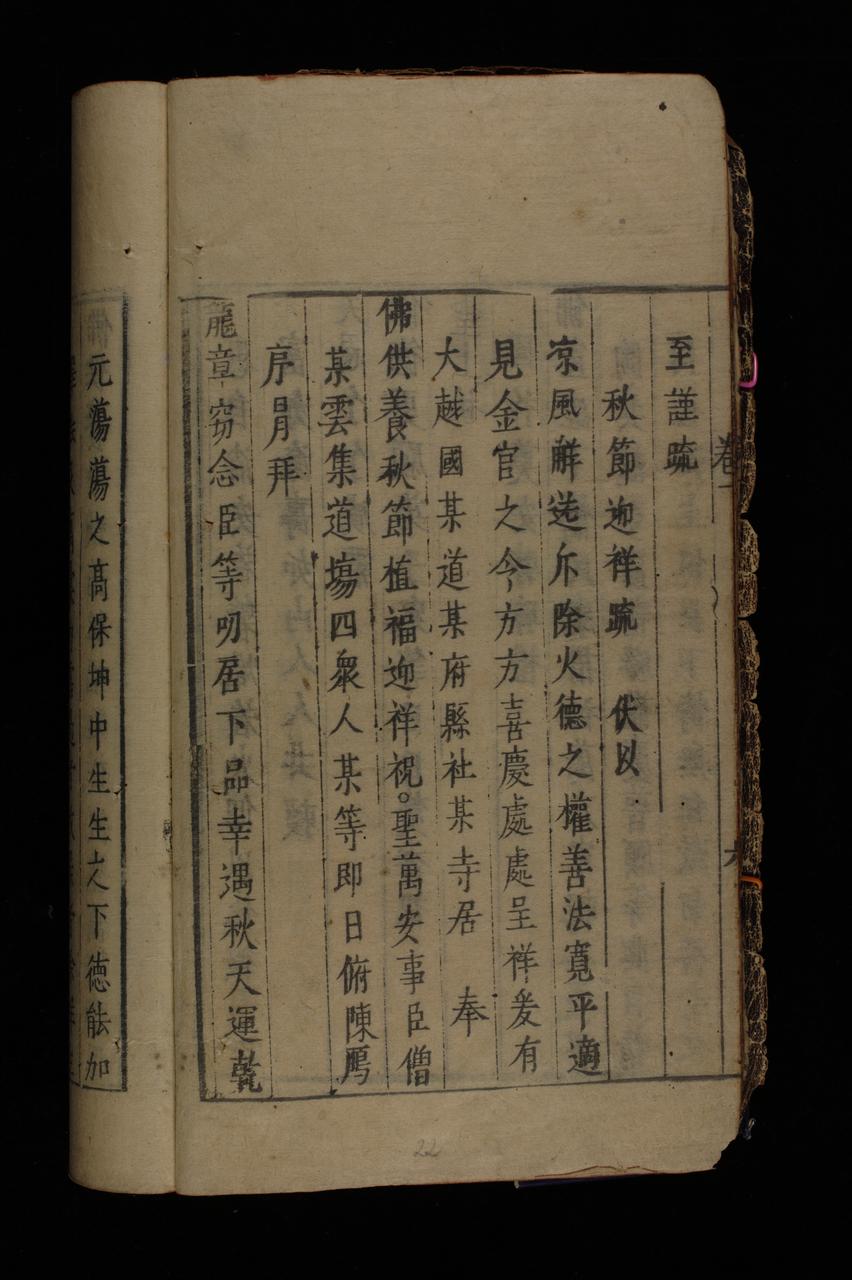 卷一
六
至謹疏
秋節迎祥疏 伏以
凉風觧送斥除火德之權善法寬平適
見金官之令方方喜慶處處呈祥爰有
大越國某道某府縣社某寺居 奉
佛供養秋節植福迎祥祝○聖萬安事臣僧
某雲集道場四衆人某等即日俯陳鴈
序冐拜
龍章窃念臣等叨居下品幸遇秋天運乾
元蕩蕩之髙保坤中生生之下德能加
22